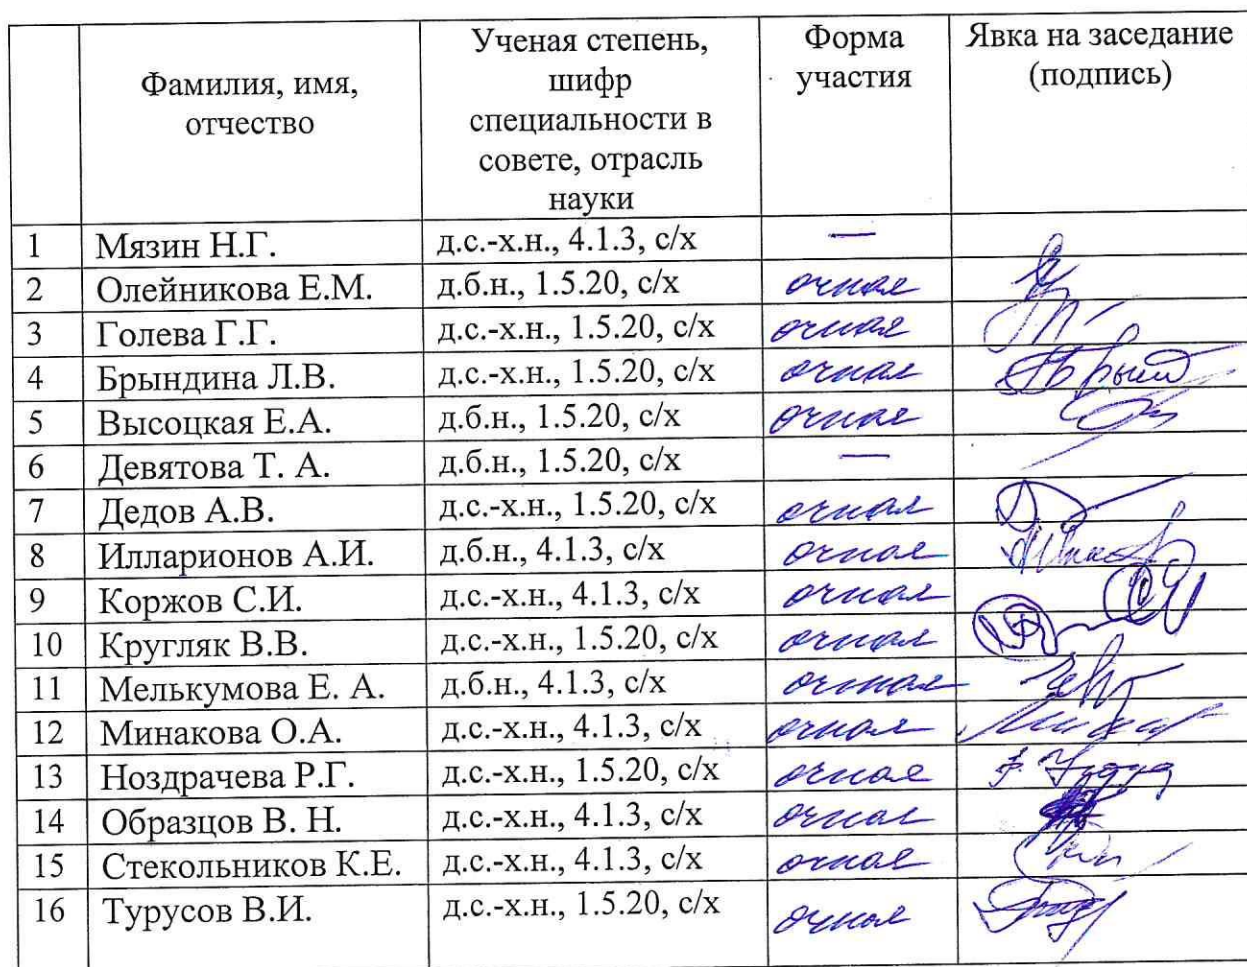 Фамилия, имя,
отчество
Ученая степень,
шифр
специальности в
совете, отрасль
науки
Форма
участия
Явка на заседание
(подпись)
1 Мязин Н.Г. д.с.-х.н., 4.1.3, с/х —
2 Олейникова Е.М. д.б.н., 1.5.20, с/х очная
3 Голева Г.Г. д.с.-х.н., 1.5.20, с/х очная
4 Брындина Л.В. д.с.-х.н., 1.5.20, с/х очная
5 Высоцкая Е.А. д.б.н., 1.5.20, с/х очная
6 Девятова Т. А. д.б.н., 1.5.20, с/х —
7 Дедов А.В. д.с.-х.н., 1.5.20, с/х очная
8 Илларионов А.И. д.б.н., 4.1.3, с/х очная
9 Коржов С.И. д.с.-х.н., 4.1.3, с/х очная
10 Кругляк В.В. д.с.-х.н., 1.5.20, с/х очная
11 Мелькумова Е. А. д.б.н., 4.1.3, с/х очная
12 Минакова О.А. д.с.-х.н., 4.1.3, с/х очная
13 Ноздрачева Р.Г. д.с.-х.н., 1.5.20, с/х очная
14 Образцов В. Н. д.с.-х.н., 4.1.3, с/х очная
15 Стекольников К.Е. д.с.-х.н., 4.1.3, с/х очная
16 Турусов В.И. д.с.-х.н., 1.5.20, с/х очная